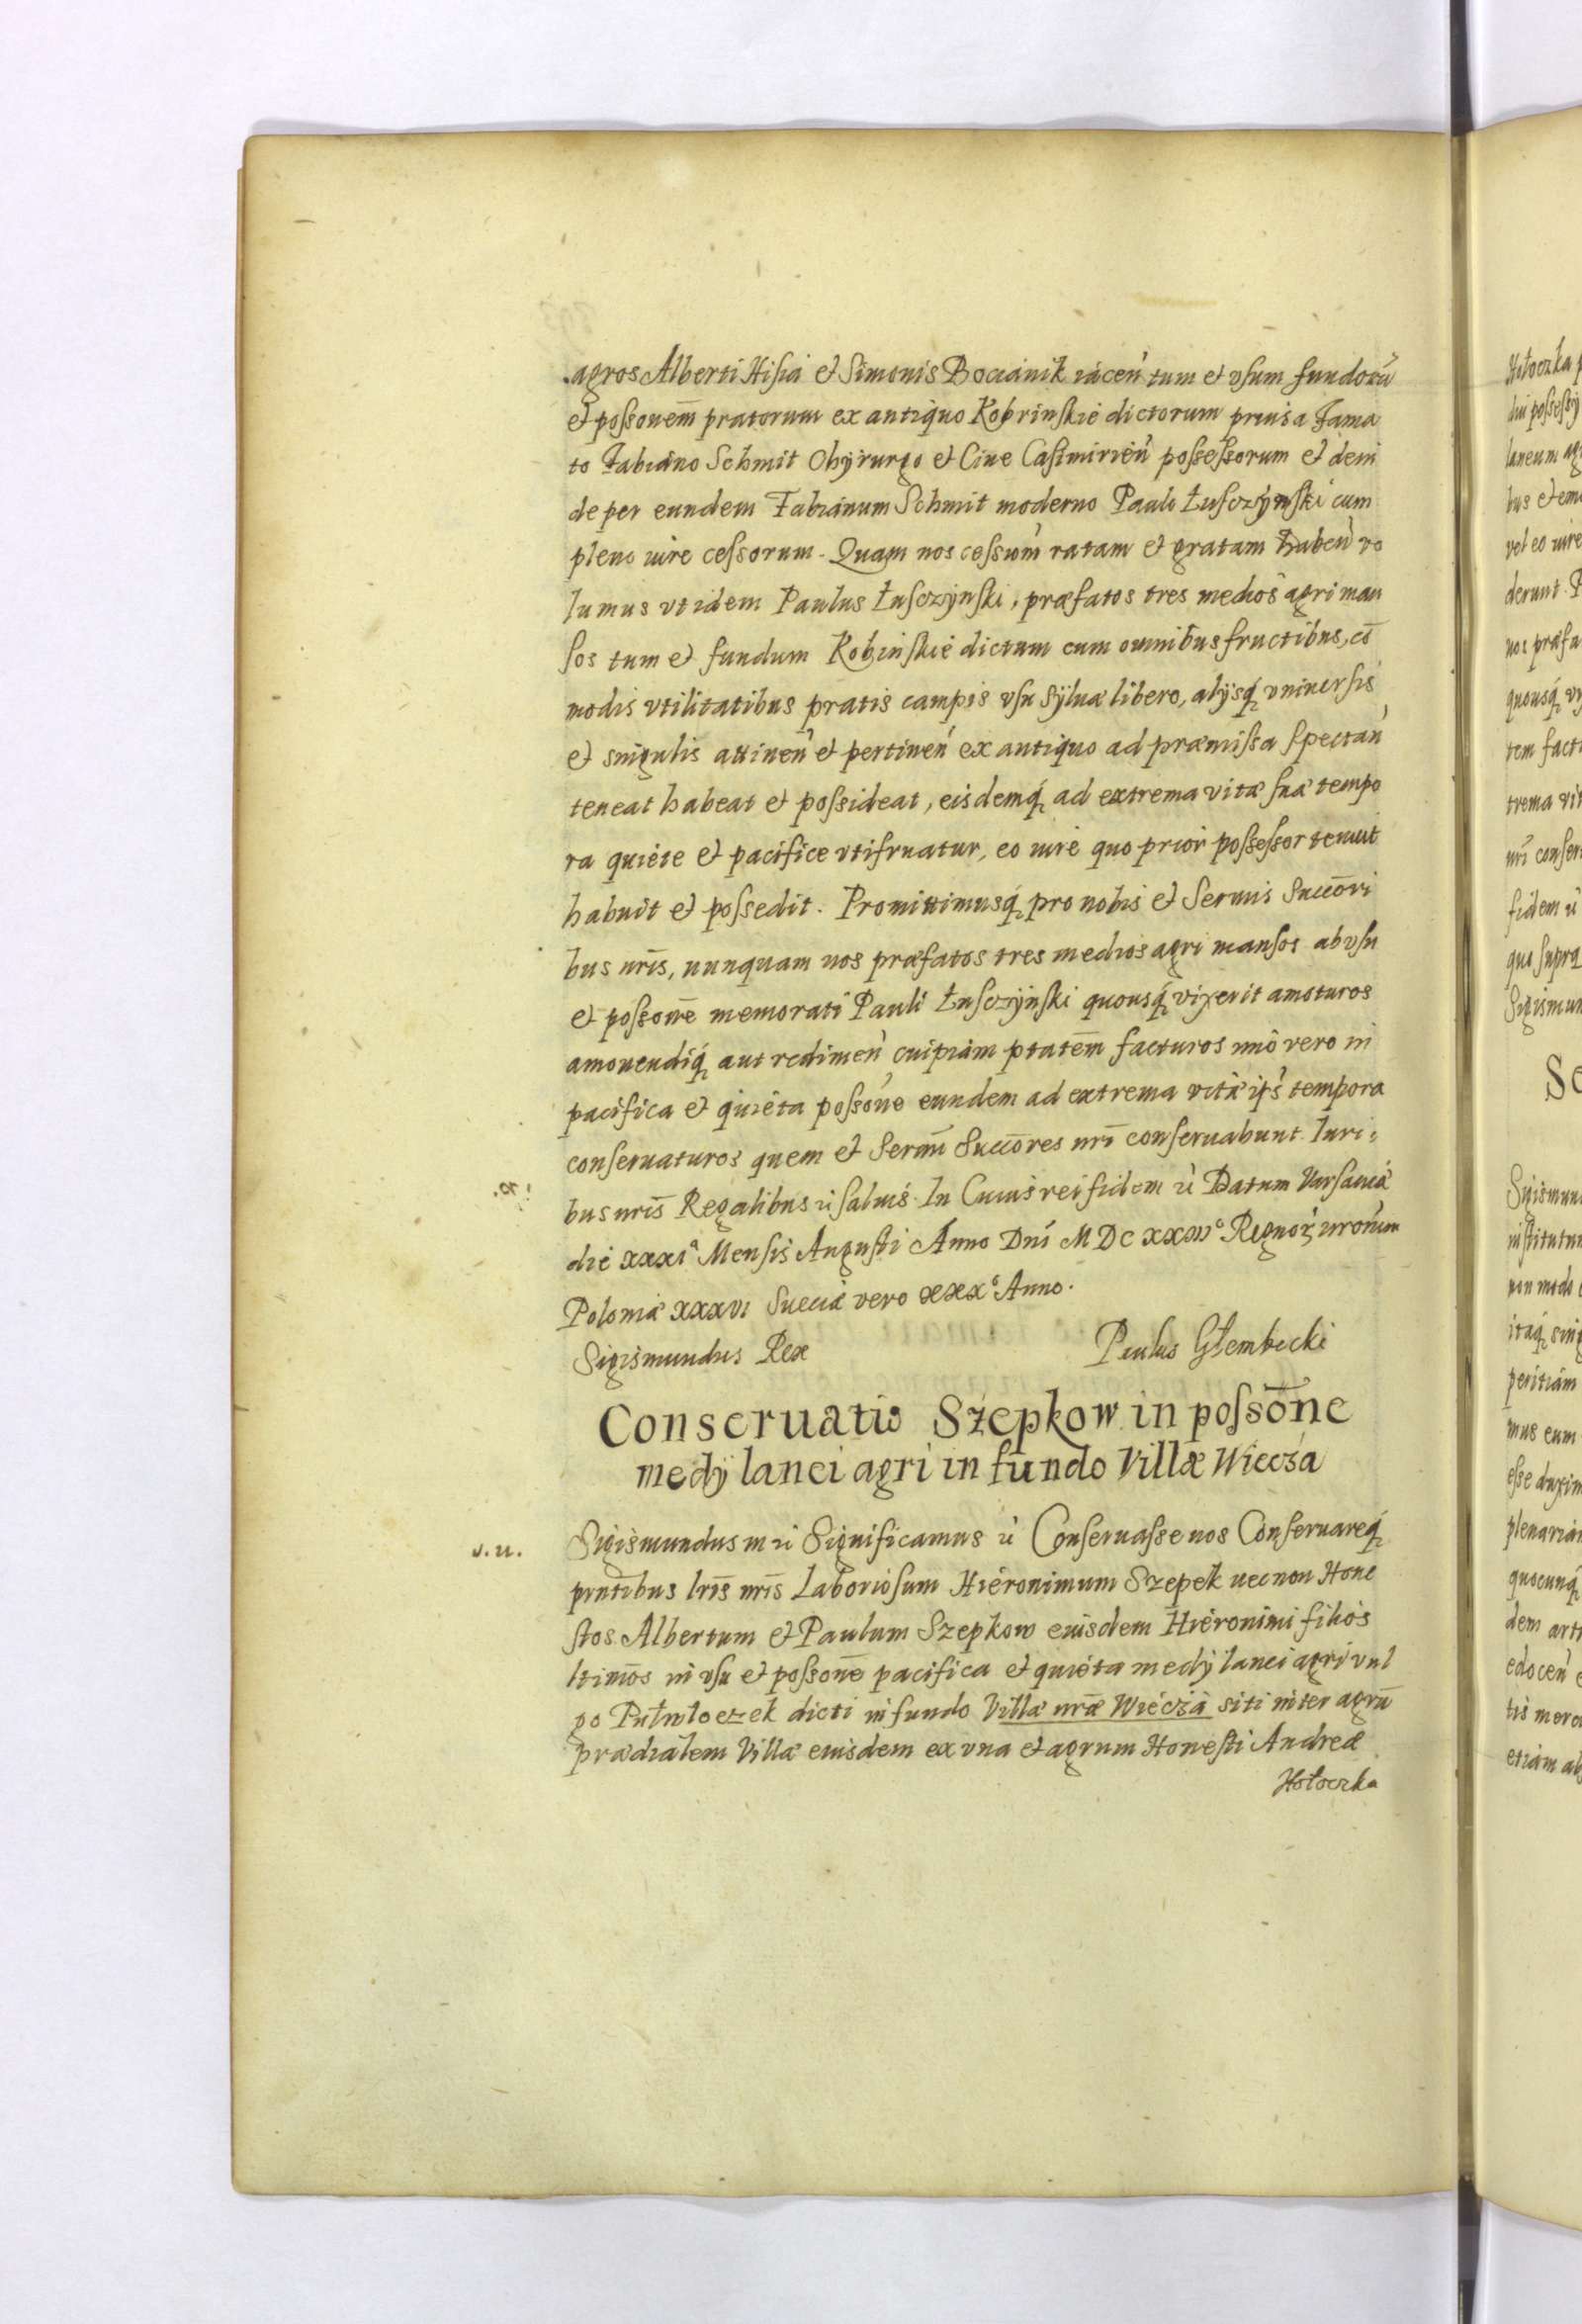 agros Alberti Hisia et Simonis Bocianik iacen̄ tum et vsum fundorū
et possonem̄ pratorum ex antiquo Kobrinskie dictorum prius a Fama
to Fabiano Schmit Chyrurgo et Ciue Casimirien̄ possessorum et dein
de per eundem Fabianum Schmit moderno Paulo Łusczÿnski cum
pleno iure cessorum. Quam nos cessiom̄ ratam et gratam haben̄ vo
lumus vt idem Paulus Łusczÿnski, præfatos tres medios agri man
sos tum et fundum Kobinskie dictum cum omnibus fructibus, cō
modis vtilitatibus pratis campis vsu sÿluæ libero, alÿsq́ vniuersis
et singulis attinen̄ et pertinen̄ ex antiquo ad præmissa spectan̄
teneat habeat et possideat, eisdemq́ ad extrema vitæ suæ tempo
ra quiete et pacifice vtifruatur, eo iure quo prior possessor tenuit
habuit et possedit. Promittimusq́ pro nobis et Sermis Succōri
bus nr̄is, nunquam nos præfatos tres medios agri mansos ab vsu
et possōne memorati Pauli Łusczÿnski quousq́ vixerit amoturos
amouendiq́ aut redimen̄ cuipiam ptatem̄ facturos imò vero in
pacifica et quieta possōne eundem ad extrema vitæ ips̄ tempora
conseruaturos quem et Sermi Succōres nr̄i conseruabunt. Iuri:
bus nr̄is Regalibus ū saluis. In Cuius rei fidem ū Datum Varsauiæ
die xxxiᵃ Mensis Augusti Anno Dnī MDCxxiiiº Regnoꝝ nrorum
Poloniæ xxxvi Sueciæ vero xxxº Anno.
Sigismundus Rex Paulus Głembecki
Conseruatio Szepkow in possōne
medÿ lanei agri in fundo Villæ Wiecza
Sigismundus III ū Significamus ū Conseruasse nos Conseruareq́
pnt̄ibus lr̄is nr̄is Laboriosum Hieronimum Szepek necnon Hone
stos Albertum et Paulum Szepkow eiusdem Hieronimi filios
ltimōs in vsu et possōne pacifica et quieta medÿ lanei agri vul
go Pułwłoczek dicti in fundo Villæ nr̄æ Wiecżā siti inter agrū
prædialem Villæ eiusdem ex vna et agrum Honesti Andreæ
Hołoczka